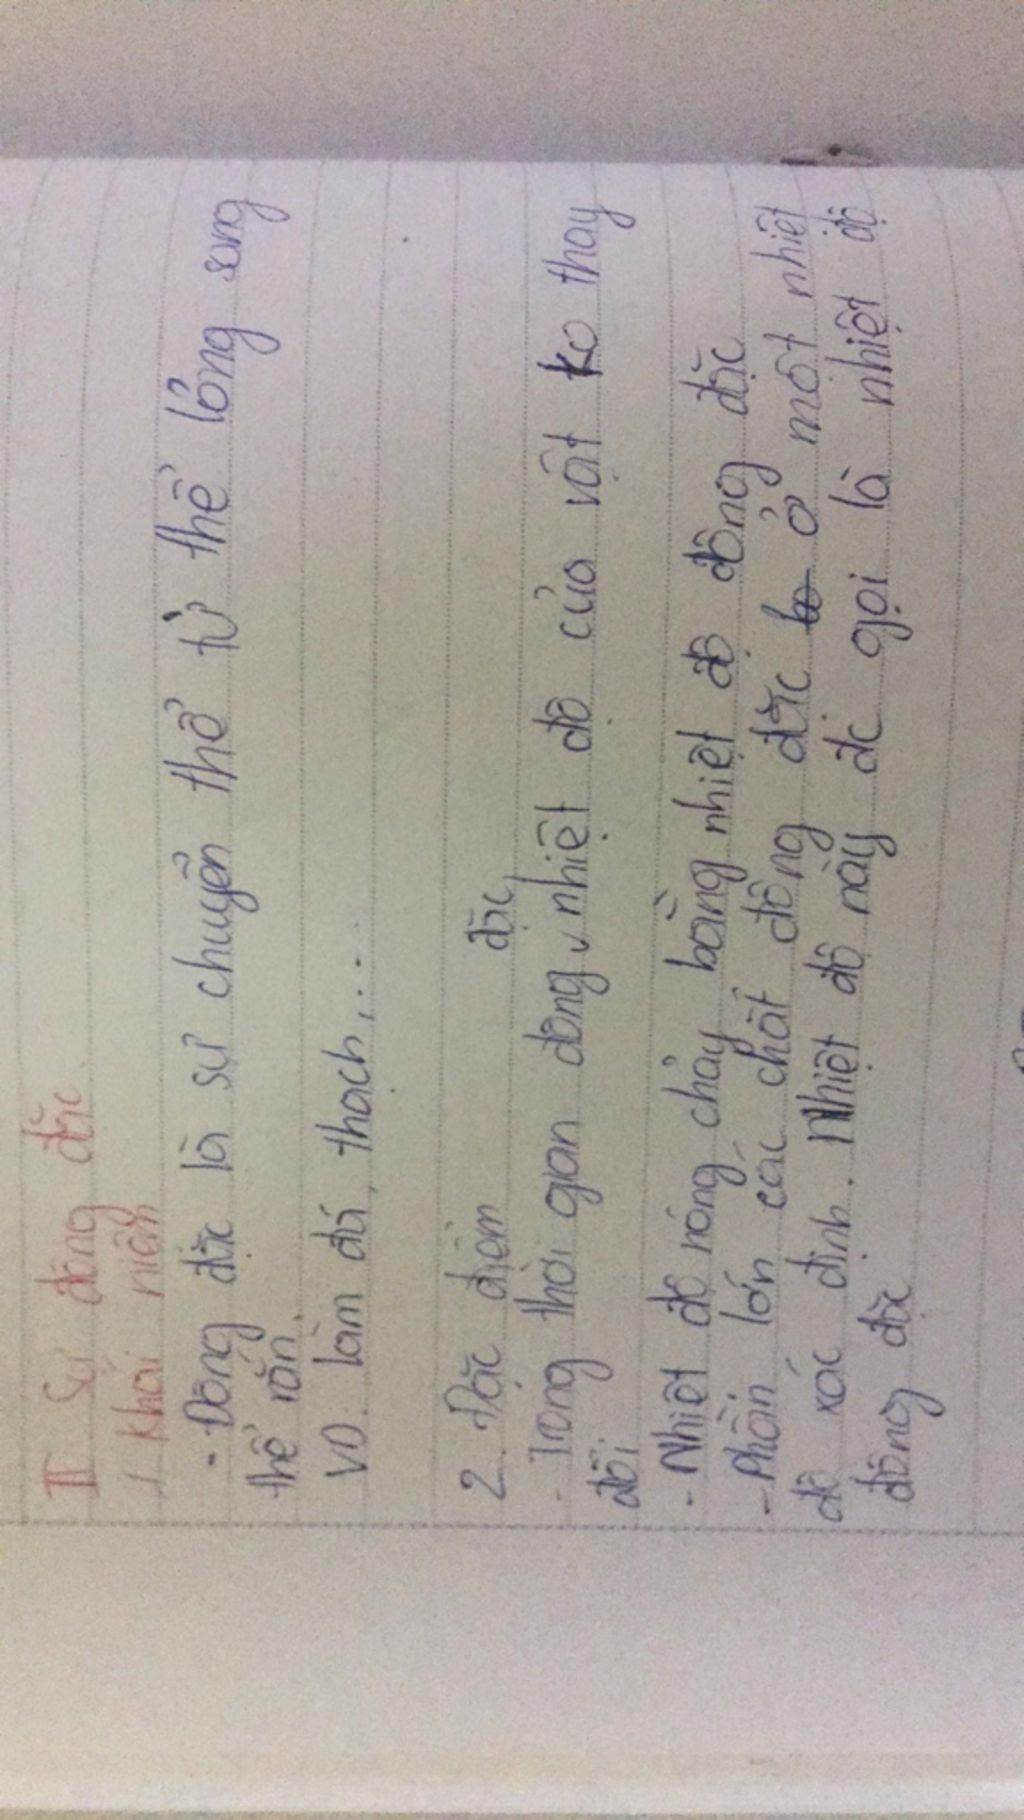 II Sự đông đặc
1. Khái niệm
- Đông đặc là sự chuyển thể từ thể lỏng sang
thể rắn.
VD. làm đá, thạch,...
2. Đặc điểm
- Trong thời gian đông đặc, nhiệt độ của vật ko thay
đổi
- Nhiệt độ nóng chảy bằng nhiệt độ đông đặc
- Phần lớn các chất đông đặc ở một nhiệt
độ xác định. Nhiệt độ này đc gọi là nhiệt độ
đông đặc